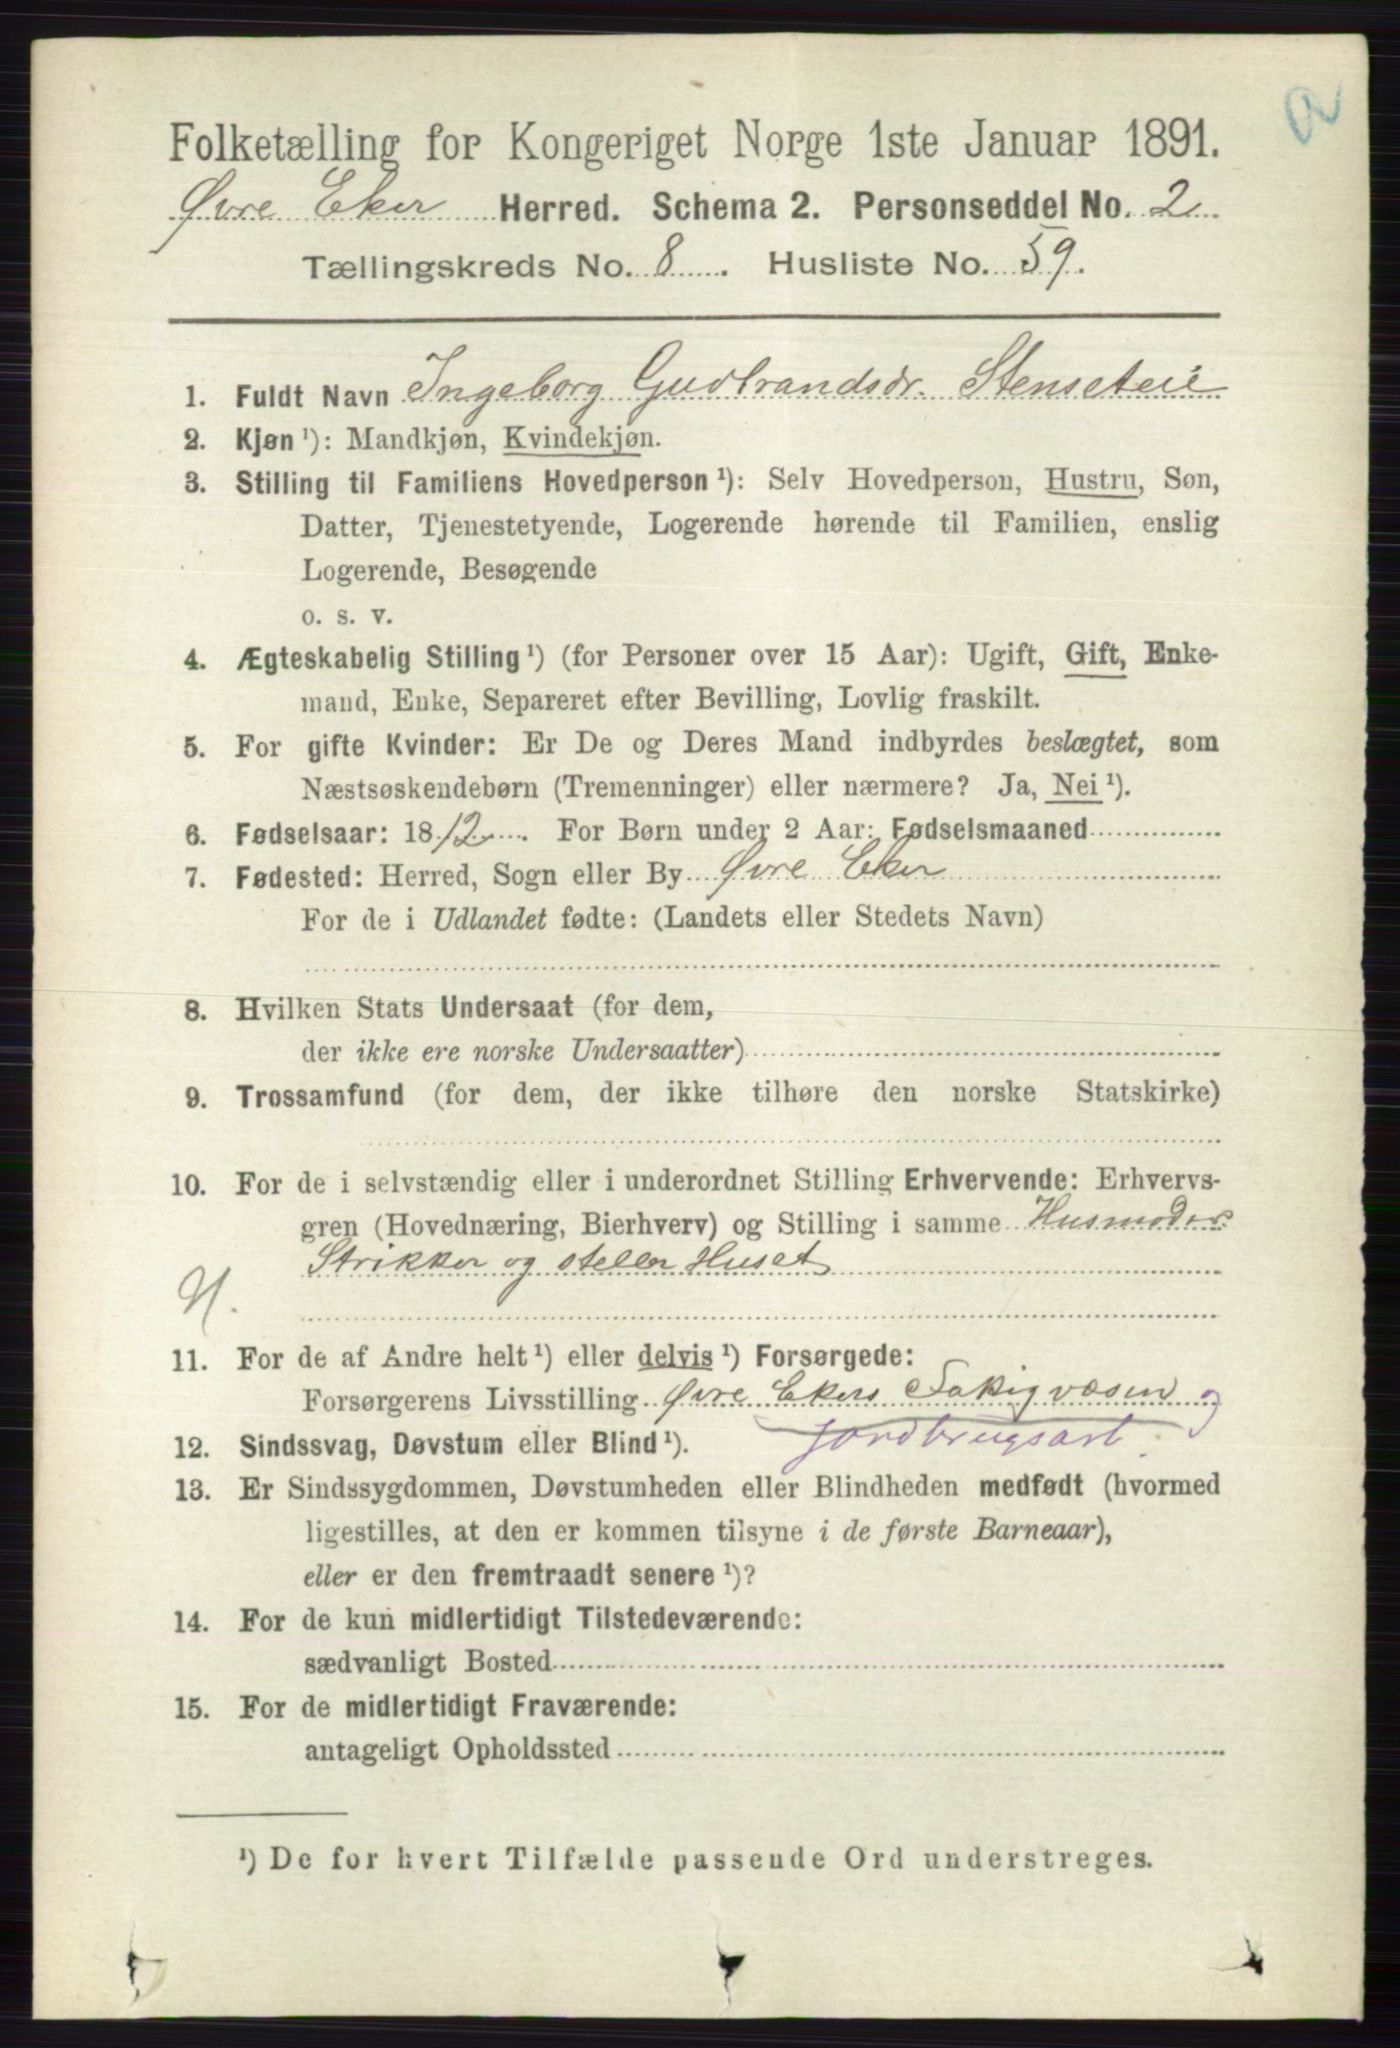 Folketælling for Kongeriget Norge 1ste Januar 1891.
Øvre Eker Herred. Schema 2. Personseddel No. 2
Tællingskreds No. 8. Husliste No. 59.
1. Fuldt Navn Ingeborg Gudbrandsdr. Stenseteie
2. Kjøn ¹): Mandkjøn, Kvindekjøn.
3. Stilling til Familiens Hovedperson ¹): Selv Hovedperson, Hustru, Søn,
Datter, Tjenestetyende, Logerende hørende til Familien, enslig
Logerende, Besøgende
o. s. v.
4. Ægteskabelig Stilling ¹) (for Personer over 15 Aar): Ugift, Gift, Enke-
mand, Enke, Separeret efter Bevilling, Lovlig fraskilt.
5. For gifte Kvinder: Er De og Deres Mand indbyrdes beslægtet, som
Næstsøskendebørn (Tremenninger) eller nærmere? Ja, Nei ¹).
6. Fødselsaar: 1812. For Børn under 2 Aar: Fødselsmaaned
7. Fødested: Herred, Sogn eller By Øvre Eker
For de i Udlandet fødte: (Landets eller Stedets Navn)
8. Hvilken Stats Undersaat (for dem,
der ikke ere norske Undersaatter)
9. Trossamfund (for dem, der ikke tilhøre den norske Statskirke)
10. For de i selvstændig eller i underordnet Stilling Erhvervende: Erhvervs-
gren (Hovednæring, Bierhverv) og Stilling i samme Husmoder
Strikker og steller Huset
N.
11. For de af Andre helt ¹) eller delvis ¹) Forsørgede:
Forsørgerens Livsstilling Øvre Ekers Fattigvæsen og
jordbrugsarb.
12. Sindssvag, Døvstum eller Blind ¹).
13. Er Sindssygdommen, Døvstumheden eller Blindheden medfødt (hvormed
ligestilles, at den er kommen tilsyne i de første Barneaar),
eller er den fremtraadt senere ¹)?
14. For de kun midlertidigt Tilstedeværende:
sædvanligt Bosted
15. For de midlertidigt Fraværende:
antageligt Opholdssted
¹) De for hvert Tilfælde passende Ord understreges.